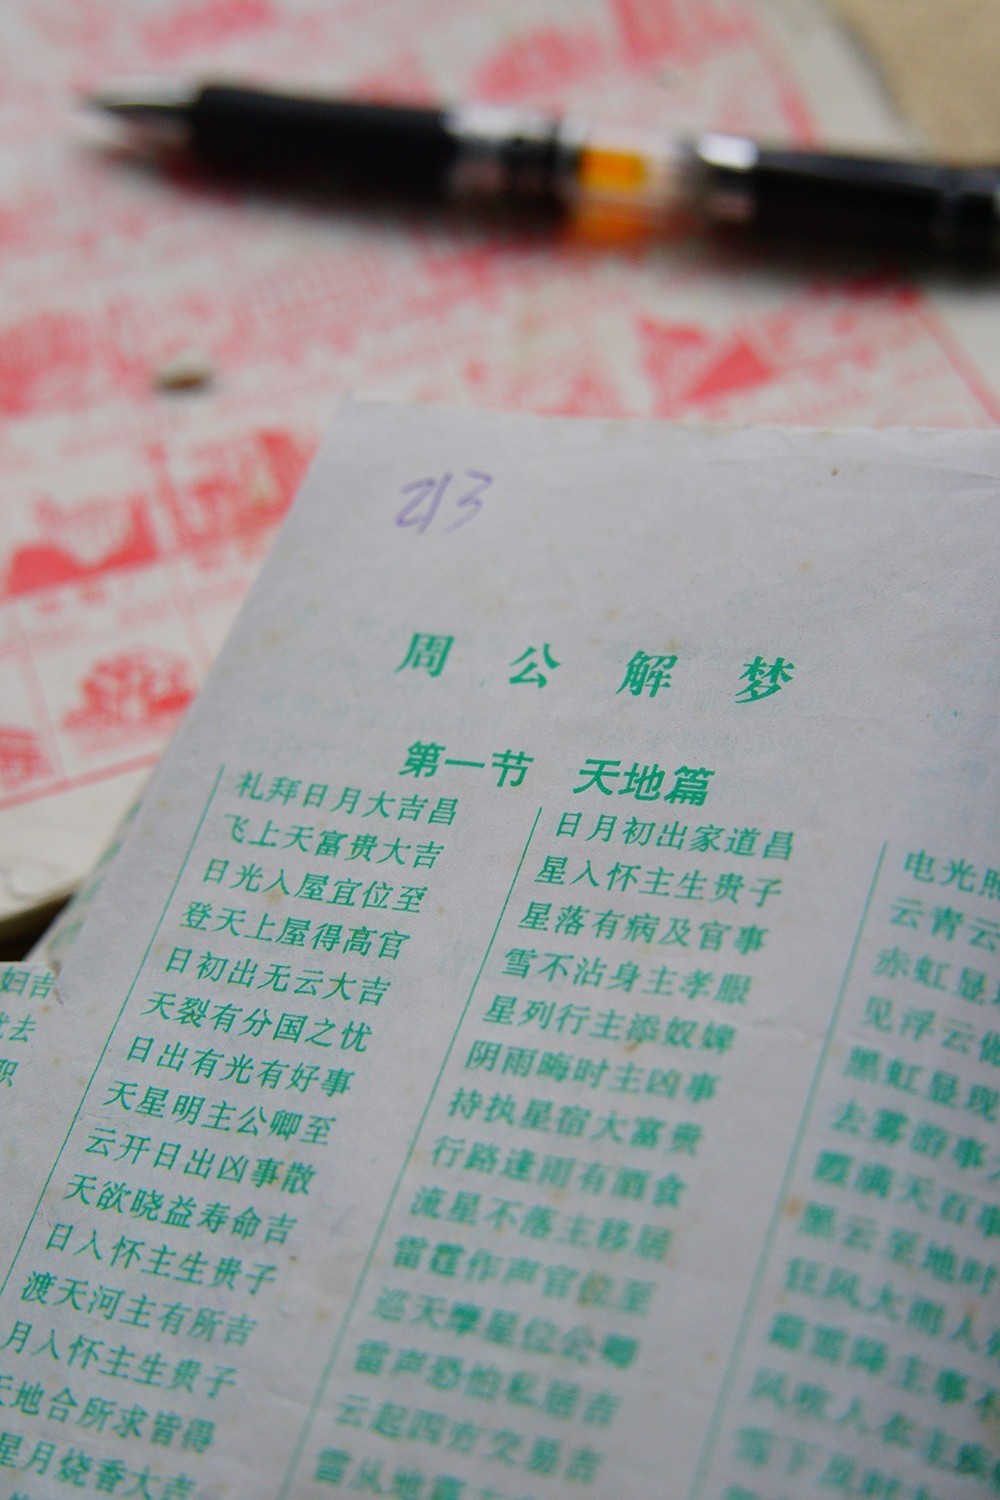 213
周公解梦
第一节 天地篇
礼拜日月大吉昌
飞上天富贵大吉
日光入屋宜位至
登天上屋得高官
日初出无云大吉
天裂有分国之忧
日出有光有好事
天星明主公卿至
云开日出凶事散
天欲晓益寿命吉
日入怀主生贵子
渡天河主有所吉
月入怀主生贵子
天地合所求皆得
星月烧香大吉
日月初出家道昌
星入怀主生贵子
星落有病及官事
雪不沾身主孝服
星列行主添奴婢
阴雨晦时主凶事
持执星宿大富贵
行路逢雨有酒食
流星不落主移居
雷霆作声官位至
巡天摩星位公卿
雷声恐怕私居吉
云起四方交易吉
雷从地震
电光照
云青云
赤虹显
见浮云做
黑虹显现
去雾游事
霞满天百事
黑云至地时
狂风大雨人
霜雪降主事
风吹人衣主疾
雪下及时
妇吉
忧去
职